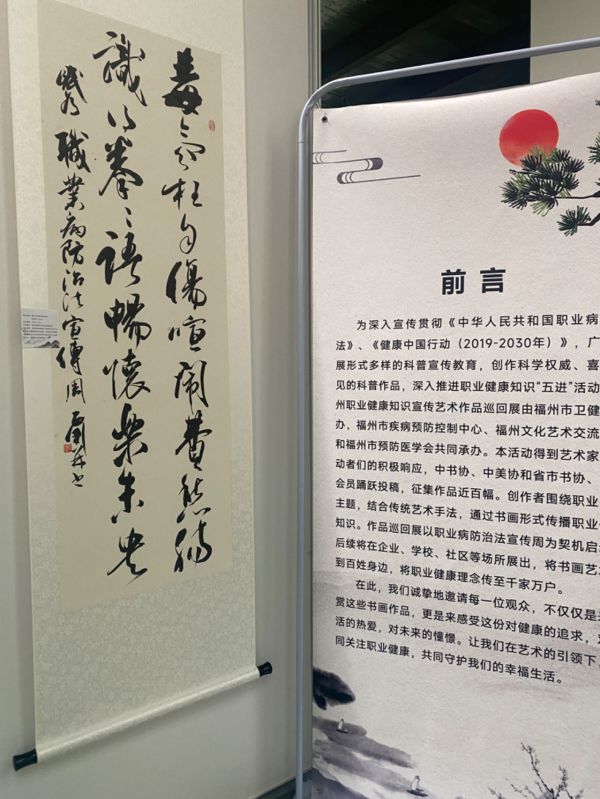 毒枉自傷喧闹費
識得拳〻語暢懷樂未央
職業病防治法宣傳周
前言
为深入宣传贯彻《中华人民共和国职业病
法》、《健康中国行动（2019-2030年）》，广
展形式多样的科普宣传教育，创作科学权威、喜
见的科普作品，深入推进职业健康知识“五进”活动
州职业健康知识宣传艺术作品巡回展由福州市卫健
办，福州市疾病预防控制中心、福州文化艺术交流
和福州市预防医学会共同承办。本活动得到艺术家
动者们的积极响应，中书协、中美协和省市书协、
会员踊跃投稿，征集作品近百幅。创作者围绕职业
主题，结合传统艺术手法，通过书画形式传播职业
知识。作品巡回展以职业病防治法宣传周为契机启
后续将在企业、学校、社区等场所展出，将书画艺
到百姓身边，将职业健康理念传至千家万户。
在此，我们诚挚地邀请每一位观众，不仅仅是
赏这些书画作品，更是来感受这份对健康的追求，
活的热爱，对未来的憧憬。让我们在艺术的引领下，
同关注职业健康，共同守护我们的幸福生活。